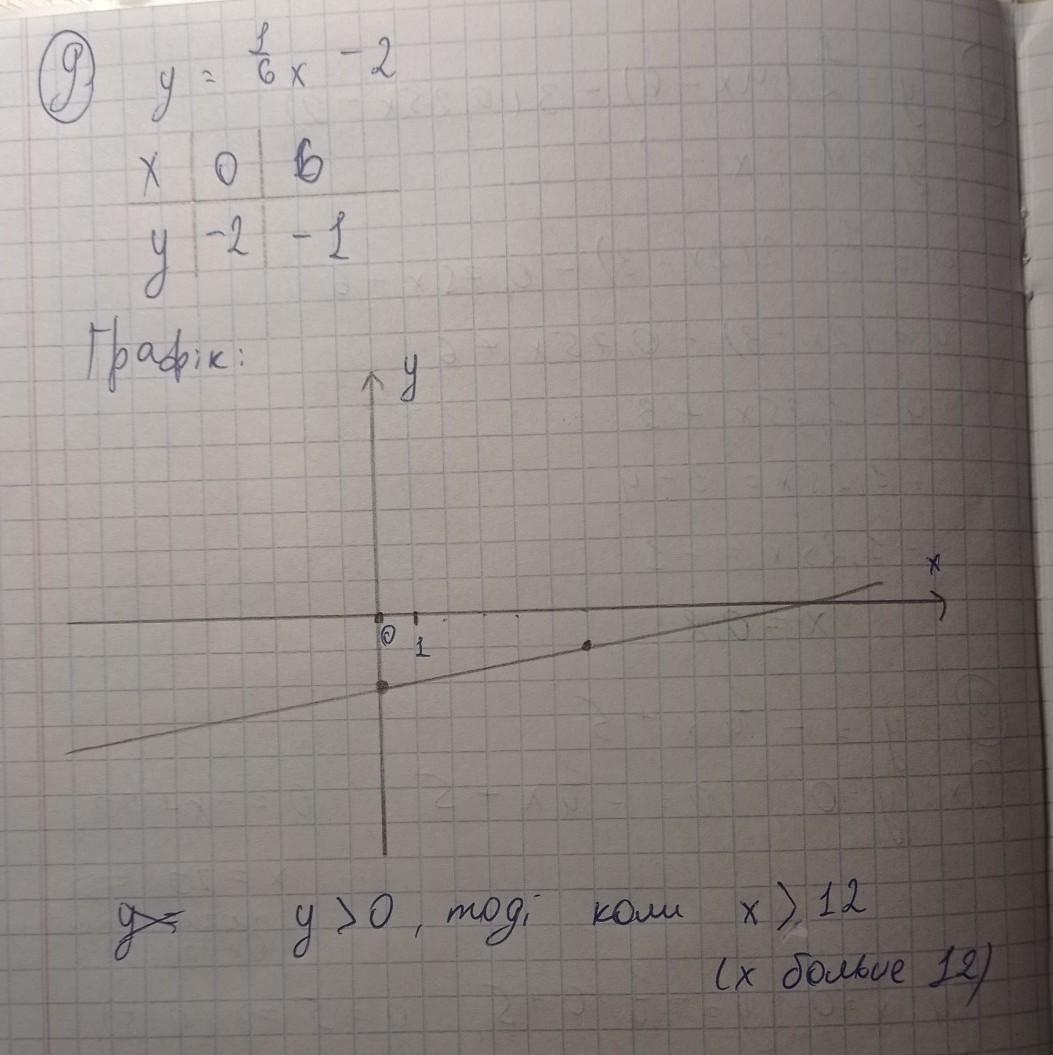 9 y = 1/6 x - 2
x 0 6
y -2 -1
Графік:
y
x
0
1
y> y > 0, тоді коли x > 12
(x больше 12)